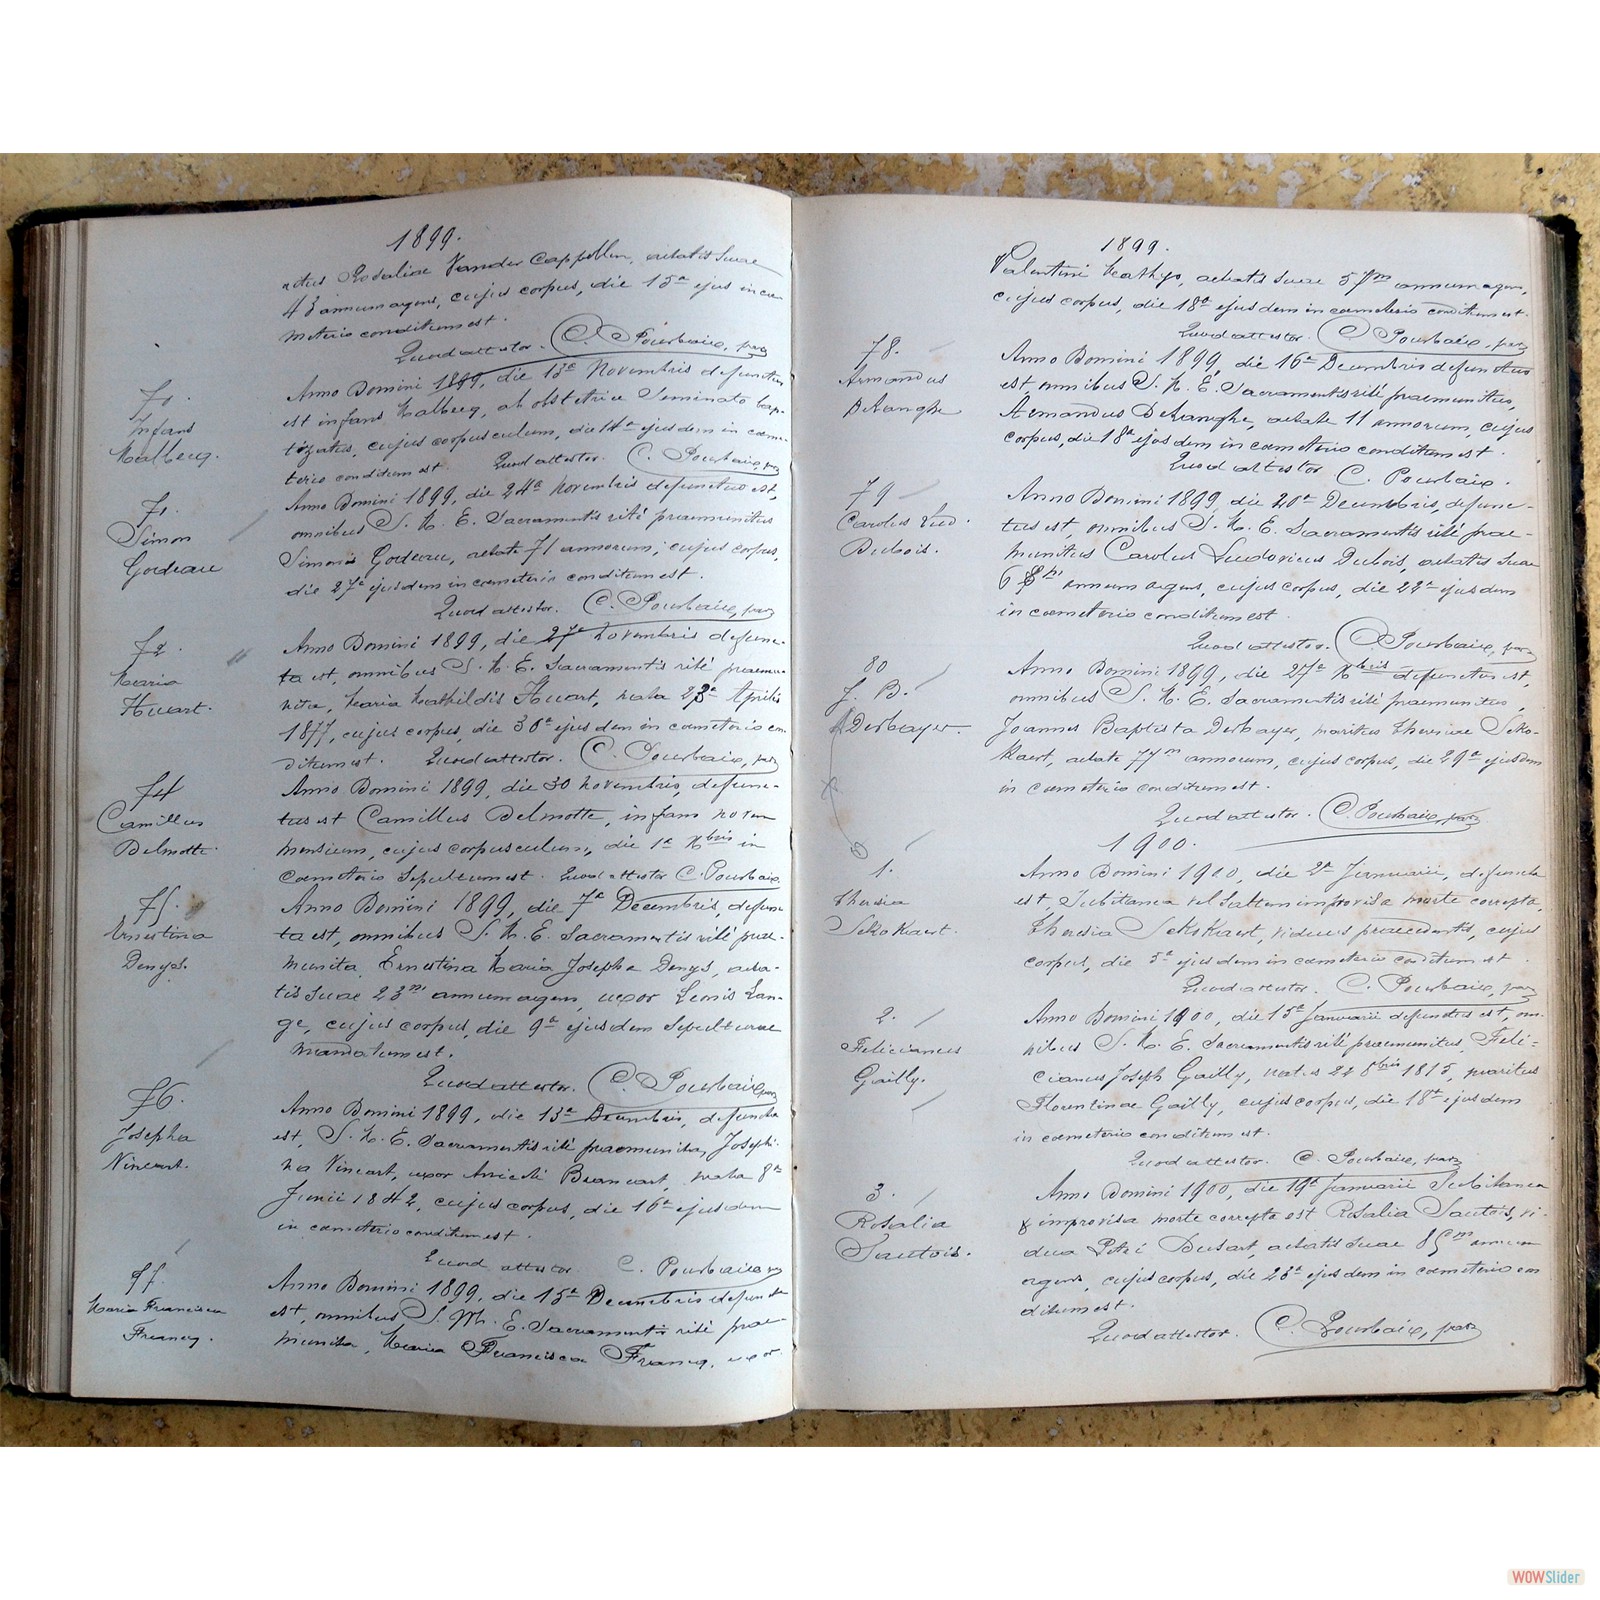 1899.
natus Rosaliae Vander Cappellen, aetatis suae
43 annum agens, cujus corpus, die 15ª ejus in cae-
meterio conditum est.
Quod attestor. C. Pourbaix, par
70.
Infans
Malberg.
Anno Domini 1899, die 13ª Novembris defunctus
est infans Malberg, ab obstetrice Seminato bap-
tizatus, cujus corpusculum, die 14ª ejusdem in caeme-
terio conditum est. Quod attestor. C. Pourbaix, par
71.
Simon
Godeau
Anno Domini 1899, die 24ª Novembris defunctus est,
omnibus S. M. E. Sacramentis rité praemunitus
Simonis Godeau, aetate 71 annorum; cujus corpus,
die 27ª ejusdem in caemeterio conditum est.
Quod attestor. C. Pourbaix, par
72.
Maria
Huart.
Anno Domini 1899, die 27ª Novembris defunc-
ta est, omnibus S. M. E. Sacramentis rité praemu-
nita, Maria Mathildis Huart, nata 23ª Aprilis
1877, cujus corpus, die 30ª ejusdem in caemeterio con-
ditum est. Quod attestor. C. Pourbaix, par
74
Camillus
Delmotte.
Anno Domini 1899, die 30 Novembris, defunc-
tus est Camillus Delmotte, infans novem
mensium, cujus corpusculum, die 1ª Xbris in
caemeterio sepultum est. Quod attestor C. Pourbaix
75.
Ernestina
Denys.
Anno Domini 1899, die 7ª Decembris, defunc-
ta est, omnibus S. M. E. Sacramentis rité prae-
munita, Ernestina Maria Josepha Denys, aeta-
tis suae 23m annum agens, uxor Leonis Lan-
ge, cujus corpus, die 9ª ejusdem sepulturae
mandatum est.
Quod attestor. C. Pourbaix, par
76.
Josepha
Vincart.
Anno Domini 1899, die 13ª Decembris, defuncta
est, S. M. E. Sacramentis rité praemunita, Josephi-
na Vincart, uxor Aniceti Brancart, nata 8ª
Junii 1842, cujus corpus, die 16ª ejusdem
in caemeterio conditum est.
Quod attestor C. Pourbaix
77.
Maria Francisca
Francq.
Anno Domini 1899, die 15ª Decembris defuncta
est, omnibus S. M. E. Sacramentis rité prae-
munita, Maria Francisca Francq, uxor
1899.
Valentini Mathys, aetatis suae 57m annum agens,
cujus corpus, die 18ª ejusdem in caemeterio conditum est.
Quod attestor. C. Pourbaix, par
78.
Armandus
DeLanghe
Anno Domini 1899, die 16ª Decembris defunctus
est omnibus S. M. E. Sacramentis rité praemunitus,
Armandus DeLanghe, aetate 11 annorum, cujus
corpus, die 18ª ejusdem in caemeterio conditum est.
Quod attestor C. Pourbaix.
79
Carolus Lud.
Dubois.
Anno Domini 1899, die 20ª Decembris, defunc-
tus est, omnibus S. M. E. Sacramentis rité prae-
munitus Carolus Ludovicus Dubois, aetatis suae
68m annum agens, cujus corpus, die 22ª ejusdem
in caemeterio conditum est.
Quod attestor. C. Pourbaix, par
80
J. B.
Derbayer.
Anno Domini 1899, die 27ª Xbris defunctus est,
omnibus S. M. E. Sacramentis rité praemunitus,
Joannes Baptista Derbayer, maritus Theresiae Seko-
Kaert, aetate 77m annorum, cujus corpus, die 29ª ejusdem
in caemeterio conditum est.
Quod attestor. C. Pourbaix, par
1900.
1.
Theresia
SekoKaert.
Anno Domini 1900, die 2ª Januarii, defuncta
est, Subitanea vel saltem improvisa morte correpta,
Theresia SekoKaert, vidua praecedentis, cujus
corpus, die 5ª ejusdem in caemeterio conditum est.
Quod attestor. C. Pourbaix, par
2.
Felicianus
Gailly.
Anno Domini 1900, die 15ª Januarii defunctus est, om-
nibus S. M. E. Sacramentis rité praemunitus, Feli-
cianus Joseph Gailly, natus 22 8bris 1815, maritus
Florentinae Gailly, cujus corpus, die 18ª ejusdem
in caemeterio conditum est.
Quod attestor. C. Pourbaix, par
3.
Rosalia
Sautois.
Anno Domini 1900, die 19ª Januarii Subitanea
& improvisa morte correpta est Rosalia Sautois, vi-
dua Petri Dusart, aetatis suae 85m annum
agens, cujus corpus, die 23ª ejusdem in caemeterio con
ditum est.
Quod attestor. C. Pourbaix, par
WOWSlider